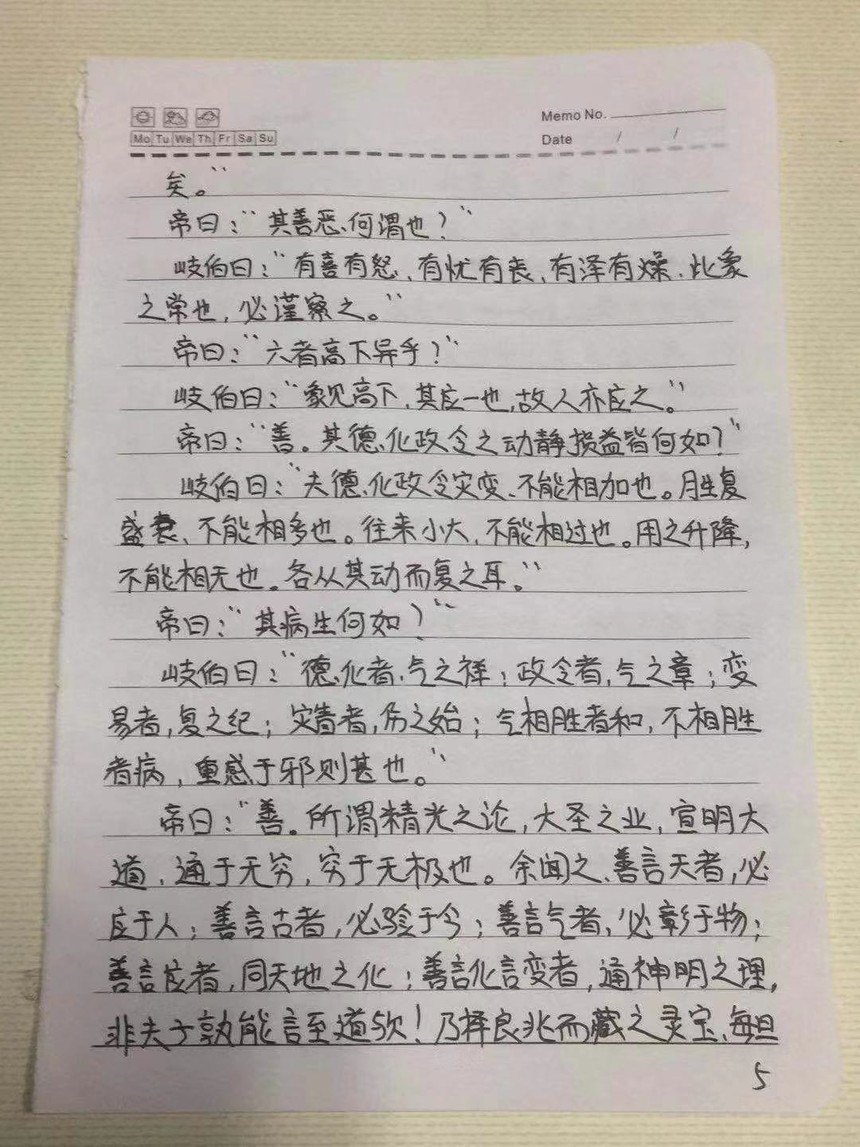 Memo No.
Mo Tu We Th Fr Sa Su
Date / /
矣。”
帝曰：“其善恶、何谓也？”
岐伯曰：“有喜有怒，有忧有丧，有泽有燥，此象
之常也，必谨察之。”
帝曰：“六者高下异乎？”
岐伯曰：“象见高下，其应一也，故人亦应之。”
帝曰：“善。其德、化政令之动静损益皆何如？”
岐伯曰：“夫德、化政令灾变、不能相加也。胜复
盛衰、不能相多也。往来小大，不能相过也。用之升降，
不能相无也。各从其动而复之耳。”
帝曰：“其病生何如？”
岐伯曰：“德、化者，气之祥；政令者，气之章；变
易者，复之纪；灾眚者，伤之始；气相胜者和，不相胜
者病，重感于邪则甚也。”
帝曰：“善。所谓精光之论，大圣之业，宣明大
道，通于无穷，穷于无极也。余闻之、善言天者，必
应于人；善言古者，必验于今；善言气者，必彰于物；
善言应者，同天地之化；善言化言变者，通神明之理，
非夫子孰能言至道欤！乃择良兆而藏之灵室、每旦
5